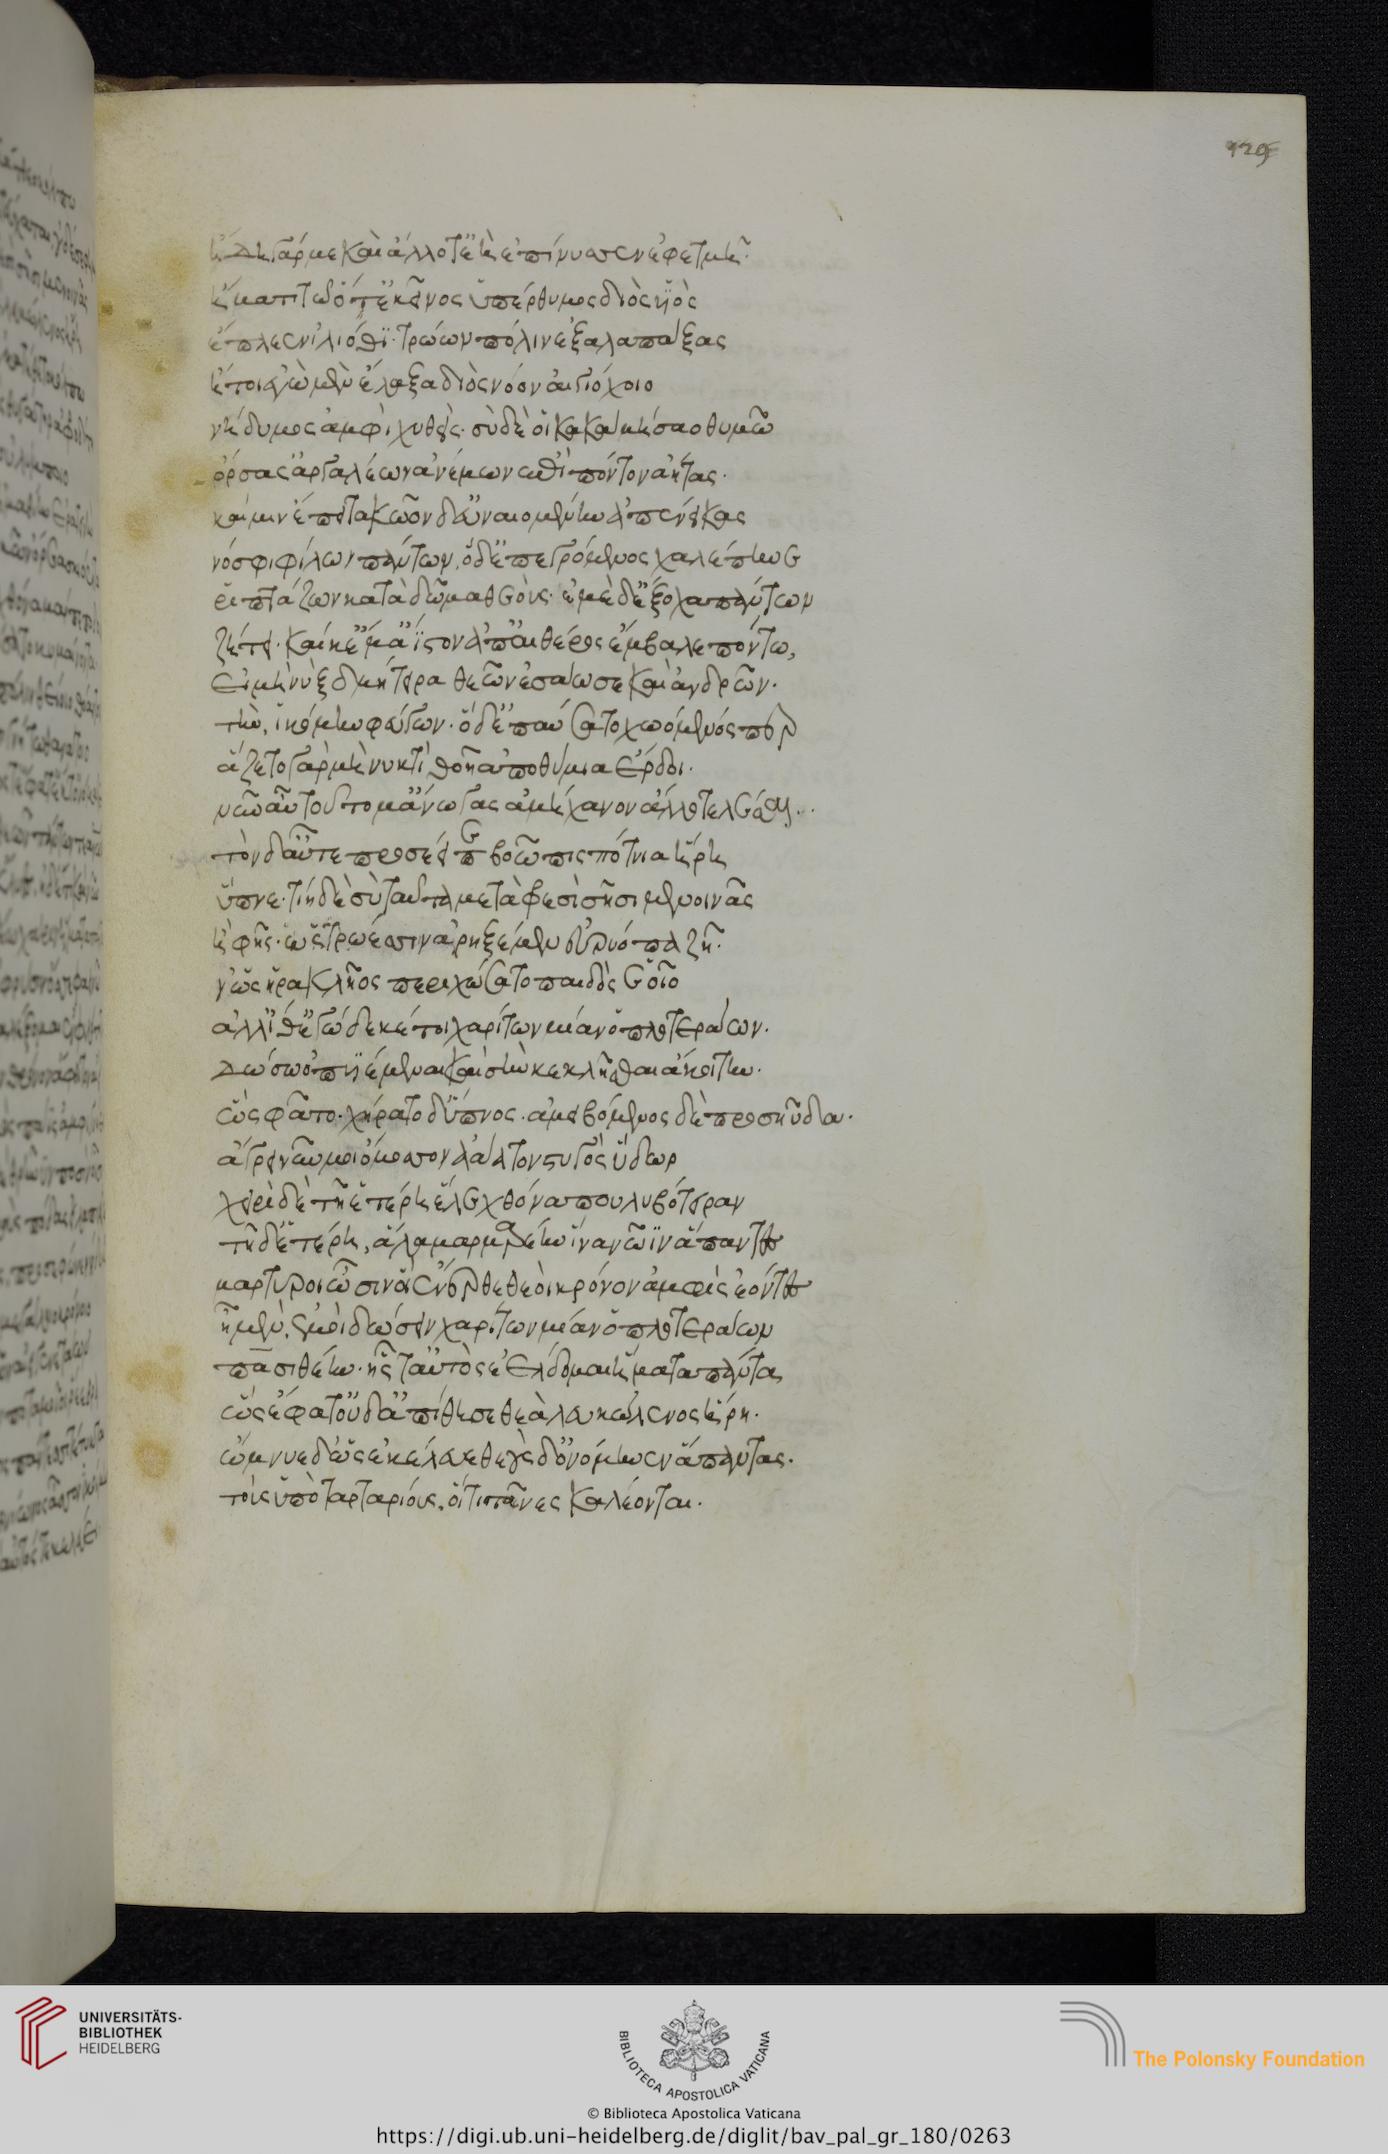 129
ἤδη γάρ με καὶ ἄλλοτ' ἐὴ ἐπίνυσσεν ἐφετμή·
ἤματι τῷ ὅτ' ἐκεῖνος ὑπέρθυμος διὸς υἱὸς
ἔπλεεν ἰλιόθι· τρώων πόλιν ἐξαλαπάξας
ἤτοι ἐγὼ μὲν ἔλεξα διὸς νόον αἰγιόχοιο
νήδυμος ἀμφὶ χυθείς· σὺ δέ οἱ κακὰ μήσαο θυμῷ
ὄρσασ' ἀργαλέων ἀνέμων ἐπὶ πόντον ἀήτας·
καί μιν ἔπειτα κῶονδ' εὖ ναιομένην ἀπένεικας
νόσφι φίλων πάντων. ὁ δ' ἐπεγρόμενος χαλέπηνε
ῥιπτάζων κατὰ δῶμα θεούς· ἐμὲ δ' ἔξοχα πάντων
ζήτει· καί κέ μ' ἄϊστον ἀπ' αἰθέρος ἔμβαλε πόντῳ,
εἰ μὴ νὺξ δμήτειρα θεῶν ἐσάωσε καὶ ἀνδρῶν·
τὴν ἱκόμην φεύγων· ὁ δ' ἐπαύσατο χωόμενός περ
ἅζετο γὰρ μὴ νυκτὶ θοῇ ἀποθύμια ἔρδοι·
νῦν αὖ τοῦτό μ' ἄνωγας ἀμήχανον ἄλλο τελέσσαι·
τὸν δ' αὖτε προσέειπε βοῶπις πότνια ἥρη
ὕπνε· τίη δὲ σὺ ταῦτα μετὰ φρεσὶ σῇσι μενοινᾷς
ἦ φῂς· ὣς τρώεσσιν ἀρηξέμεν εὐρύοπα ζῆν·
ὡς ἡρακλῆος περιχώσατο παιδὸς ἑοῖο
ἀλλ' ἴθ' ἐγὼ δέ κέ τοι χαρίτων μίαν ὁπλοτεράων·
δώσω ὀπυιέμεναι καὶ σὴν κεκλῆσθαι ἄκοιτιν·
ὣς φάτο· χήρατο δ' ὕπνος· ἀμειβόμενος δὲ προσηύδα·
ἄγρει νῦν μοι ὄμοσσον ἀάατον στυγὸς ὕδωρ
χειρὶ δὲ τῇ ἑτέρῃ ἕλε χθόνα πουλυβότειραν
τῇ δ' ἑτέρῃ, ἅλα μαρμαρέην ἵνα νῶϊν ἅπαντες
μάρτυροι ὦσιν οἱ ἔνερθε θεοὶ κρόνον ἀμφὶς ἐόντες
ἦ μὲν, ἐμοὶ δώσειν χαρίτων μίαν ὁπλοτεράων
πασιθέην· ἧς τ' αὐτὸς ἐέλδομαι ἤματα πάντα
ὣς ἔφατ' οὐδ' ἀπίθησε θεὰ λευκώλενος ἥρη·
ὤμνυε δ' ὡς ἐκέλευε θεοὺς δ' ὀνόμηνεν ἅπαντας·
τοὺς ὑποταρταρίους, οἳ τιτῆνες καλέονται·
UNIVERSITÄTS-
BIBLIOTHEK
HEIDELBERG
BIBLIOTECA APOSTOLICA VATICANA
The Polonsky Foundation
© Biblioteca Apostolica Vaticana
https://digi.ub.uni-heidelberg.de/diglit/bav_pal_gr_180/0263